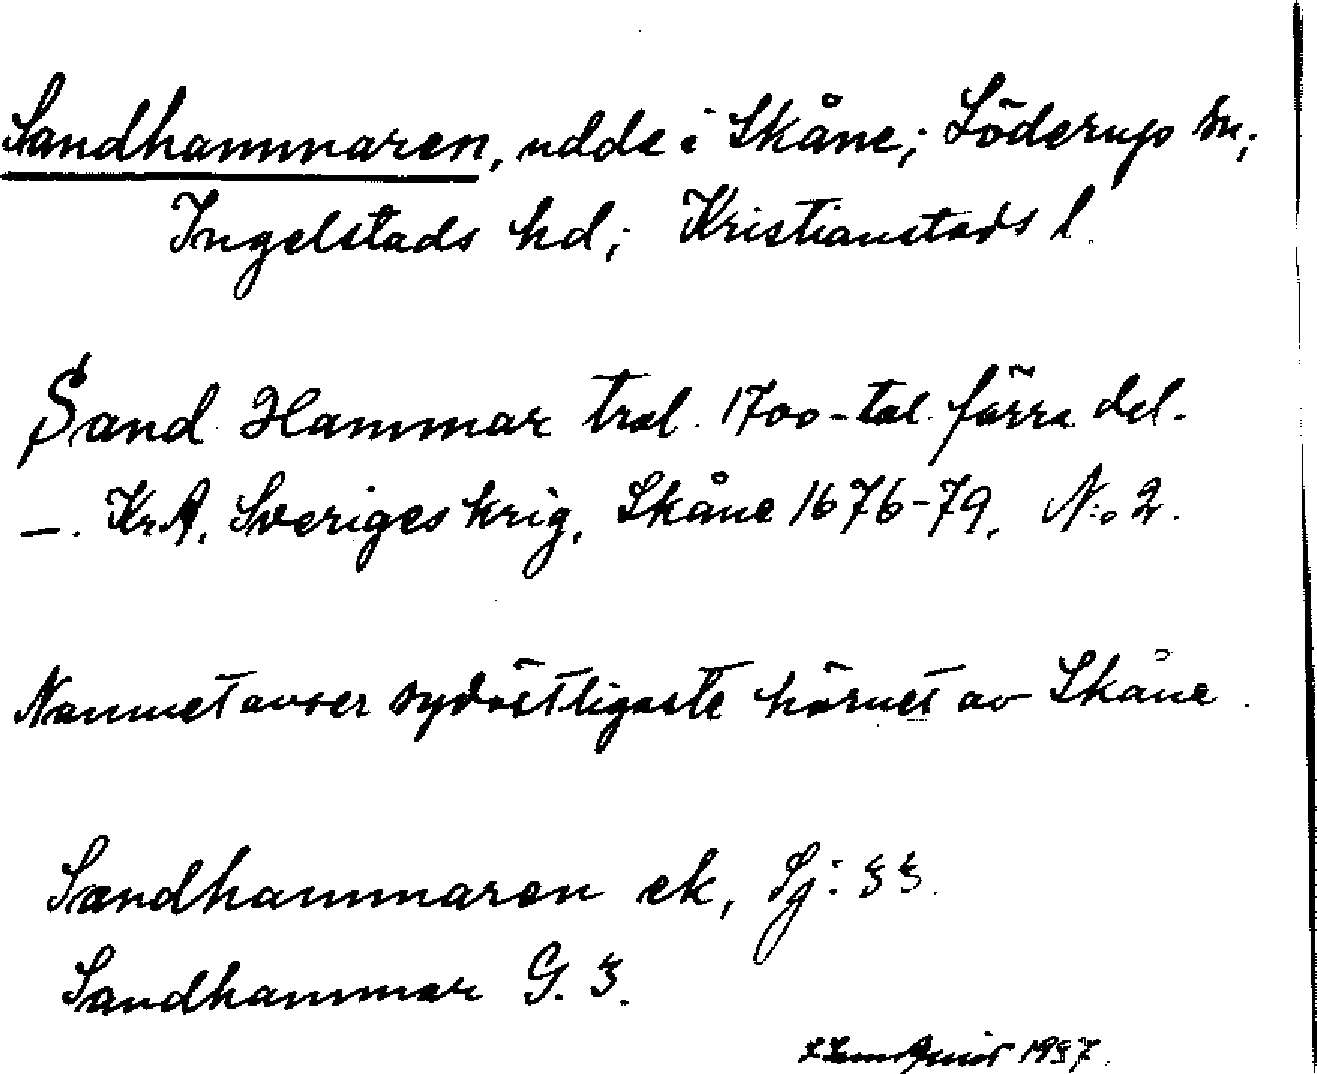 Sandhammaren, udde i Skåne; Löderup sn;
Ingelstads hd; Kristianstads l.
Sand Hammar trol. 1700-tal. förra del.
—. KrA. Sveriges krig, Skåne 1676-79. N:o 2.
Namnet avser sydöstligaste hörnet av Skåne.
Sandhammaren ek, Sj: 33.
Sandhammar G. 3.
1937.